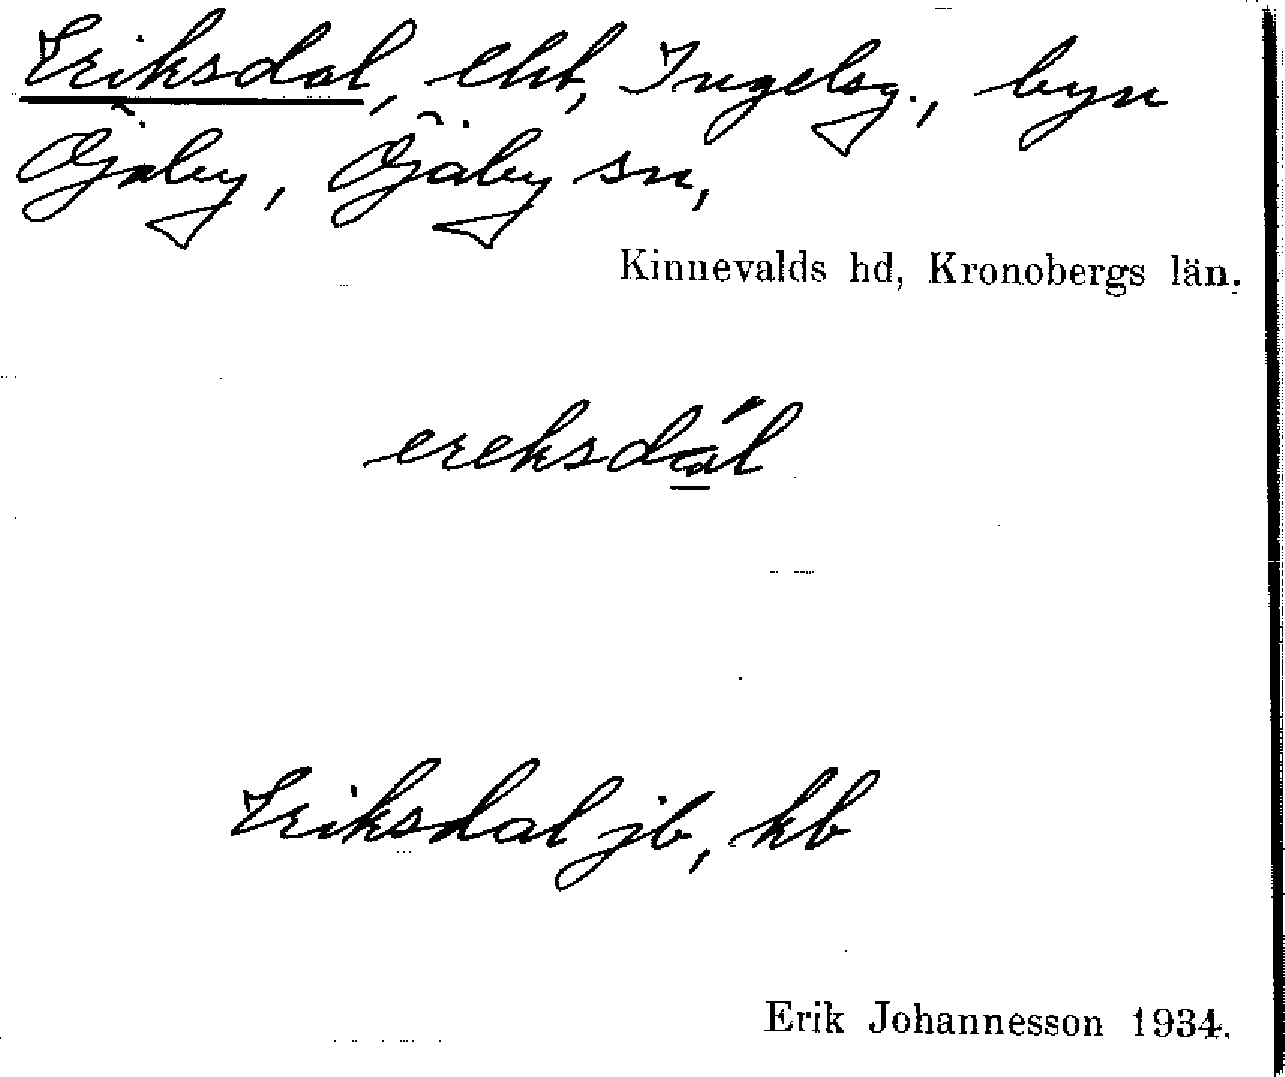 Eriksdal, lht, Ingelsg., byn
Öjaby, Öjaby sn,
Kinnevalds hd, Kronobergs län.
ereksdál
Eriksdal jb, kb
Erik Johannesson 1934.